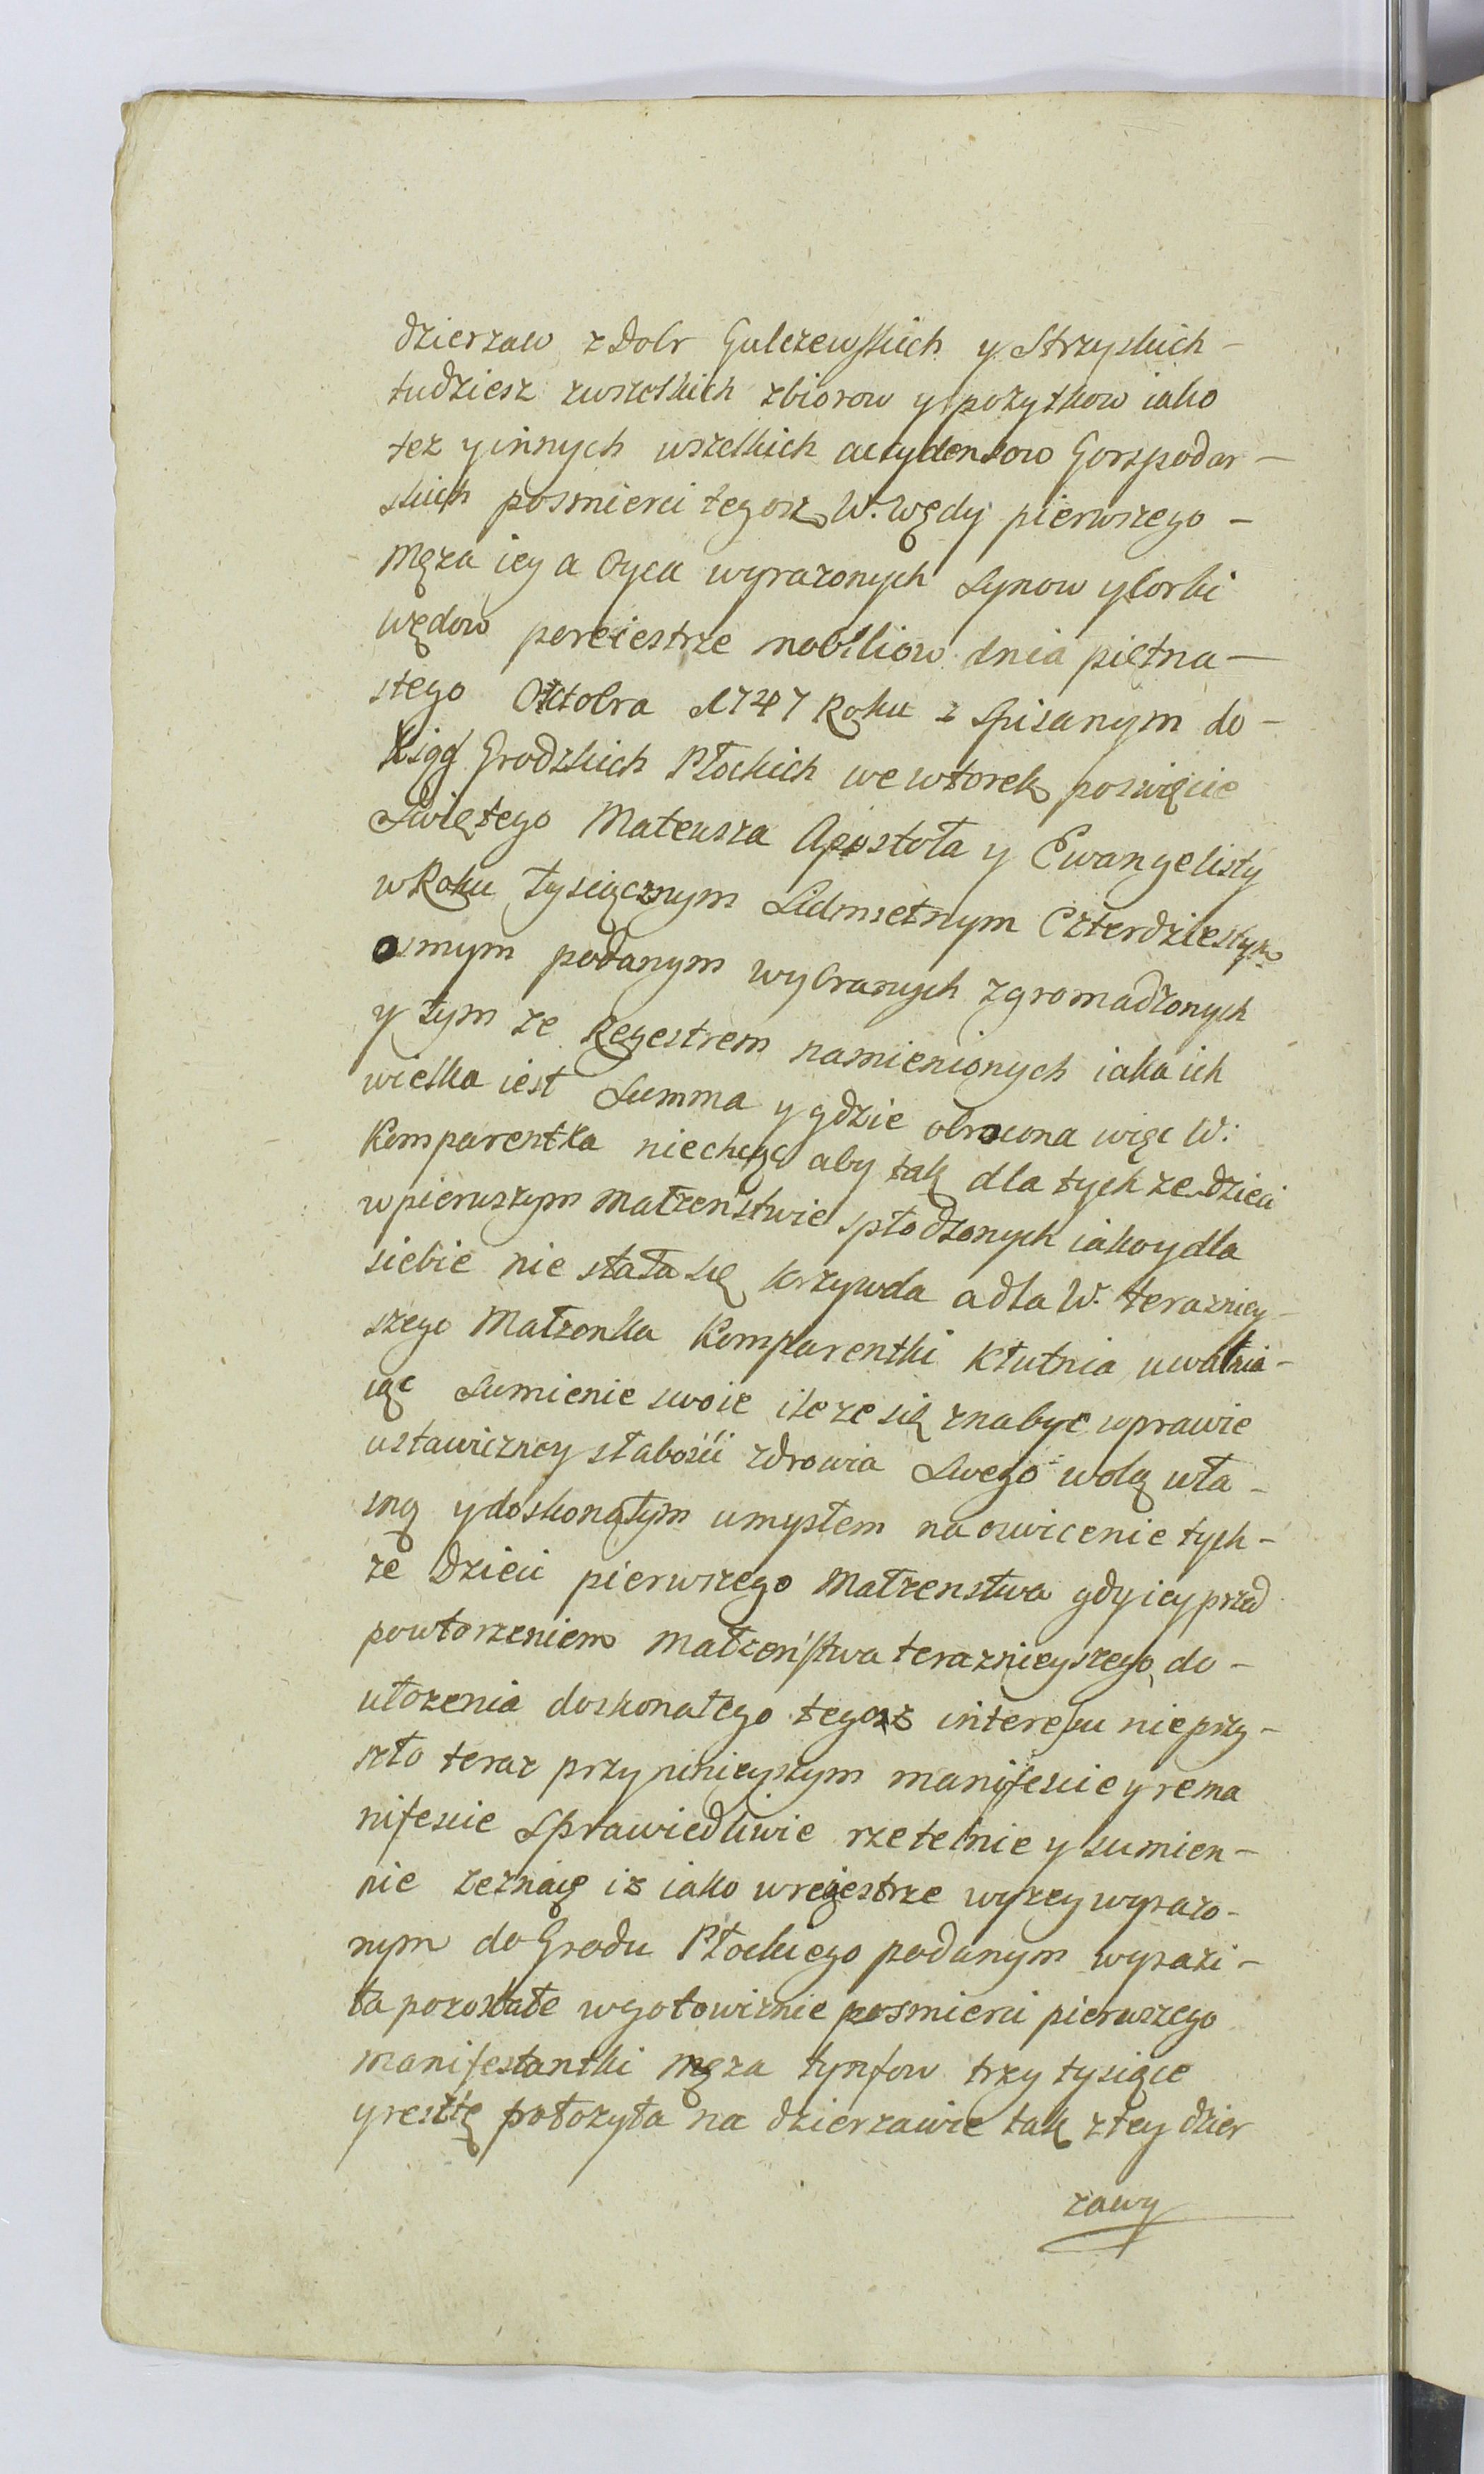 dzierzaw z Dobr Gulczewskich y Strzyskich –
tudziesz zwszelkich zbiorow y pozytkow iako
tez y innych wszelkich accydensow Gorzpodar –
skich posmierci tegosz W. Wędy pierwszego –
Męza iey a Oyca wyrazonych Synow y Corki
Wędow pereiestrze mobiliow dnia piętna –
stego Octobra 1747 Roku spisanym do –
Xiąg Grodzkich Płockich we wtorek poswięcie
Swiętego Mateusza Apostoła y Ewangelisty
w Roku Tysiącznym Sidmsetnym Czterdziestym
osmym podanym wybranych zgromadzonych
y tym ze Regestrem namienionych iaka ich
wielka iest Summa y gdzie obrocona więc W:
Komparentka niechcąc aby tak dla tych ze dzieci
w pierwszym Małzenstwie spłodzonych iako y dla
siebie nie stała się krzywda a dla W. terazniey –
szego Małzonka Komparentki Kłutnia uwalnia –
iąc Sumienie swoie ile ze się zna byc wprawie
ustawiczney słabości zdrowia Swego wolą wła –
sną y doskonałym umysłem na owicenie tych –
ze Dzieci pierwszego Małzenstwa gdy iey przed
powtorzeniem Małzeństwa terazniejszego do –
ułozenia doskonałego tegosz interessu nie przy –
szło teraz przy ninieyszym manifescie y rema
nifescie Sprawiedliwie rzetelnie y sumien –
nie zeznaię iz iako w regestrze wyzey wyrazo –
nym do Grodu Płockiego podanym wyrazi –
ła pozostałe w gotowiznie posmierci pierwszego
manifestantki męza tynfow trzy tysiące
y resztę położyła na dzierzawie tak z tey dzier
zawy